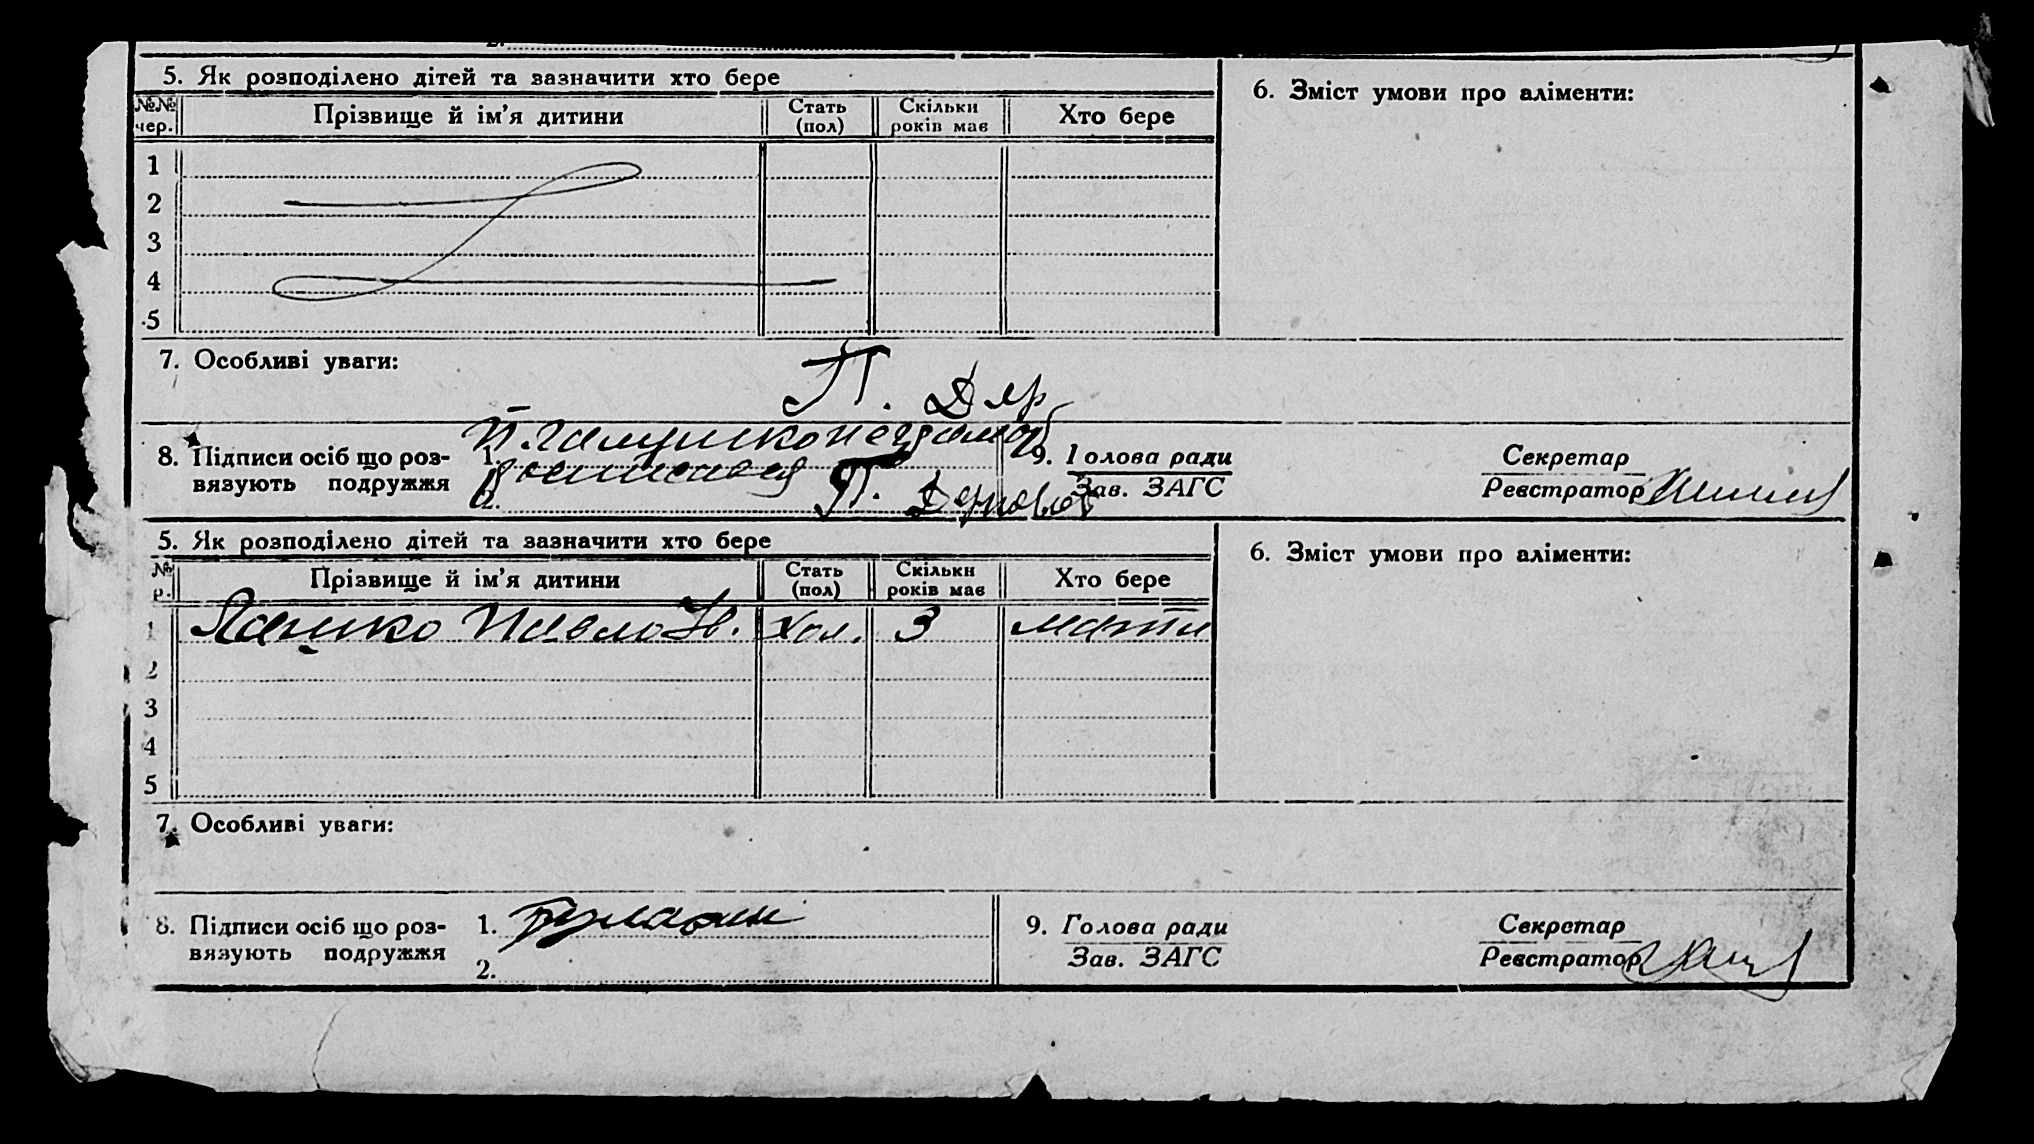 5. Як розподілено дітей та зазначити хто бере
6. Зміст умови про аліменти:
№№ чер.
Прізвище й ім'я дитини
Стать (пол)
Скільки років має
Хто бере
1
2
3
4
5
7. Особливі уваги:
П. Дяр
8. Підписи осіб що роз-
вязують подружжя
1.
2.
П.
9. Голова ради
Зав. ЗАГС
Секретар
Реєстратор
5. Як розподілено дітей та зазначити хто бере
6. Зміст умови про аліменти:
№
р.
Прізвище й ім'я дитини
Стать (пол)
Скільки років має
Хто бере
1 Павло хол. 3 мати
2
3
4
5
7. Особливі уваги:
8. Підписи осіб що роз-
вязують подружжя
1.
2.
9. Голова ради
Зав. ЗАГС
Секретар
Реєстратор